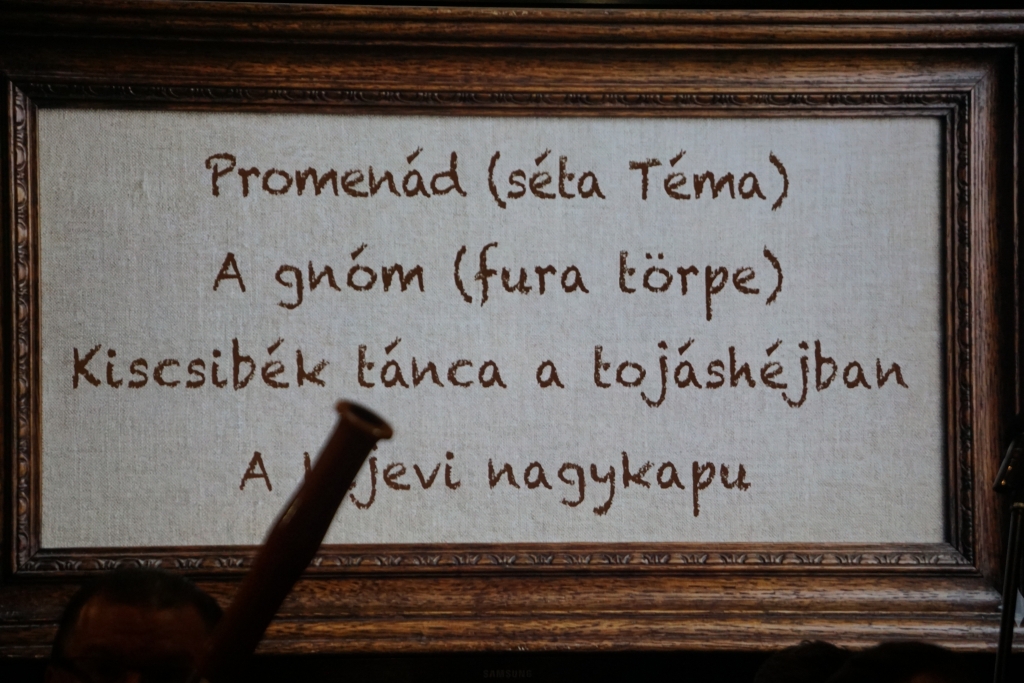 Promenád (séta Téma)
A gnóm (fura törpe)
Kiscsibék tánca a tojáshéjban
A nagykapu
SAMSUNG